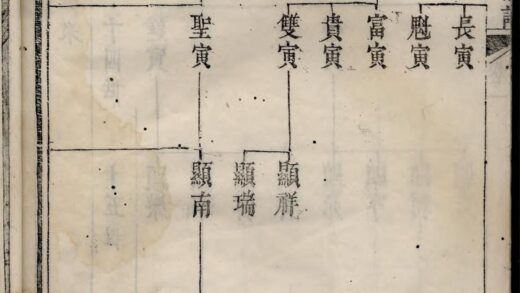 長寅
魁寅
富寅
貴寅
雙寅
聖寅
顯祥
顯瑞
顯南